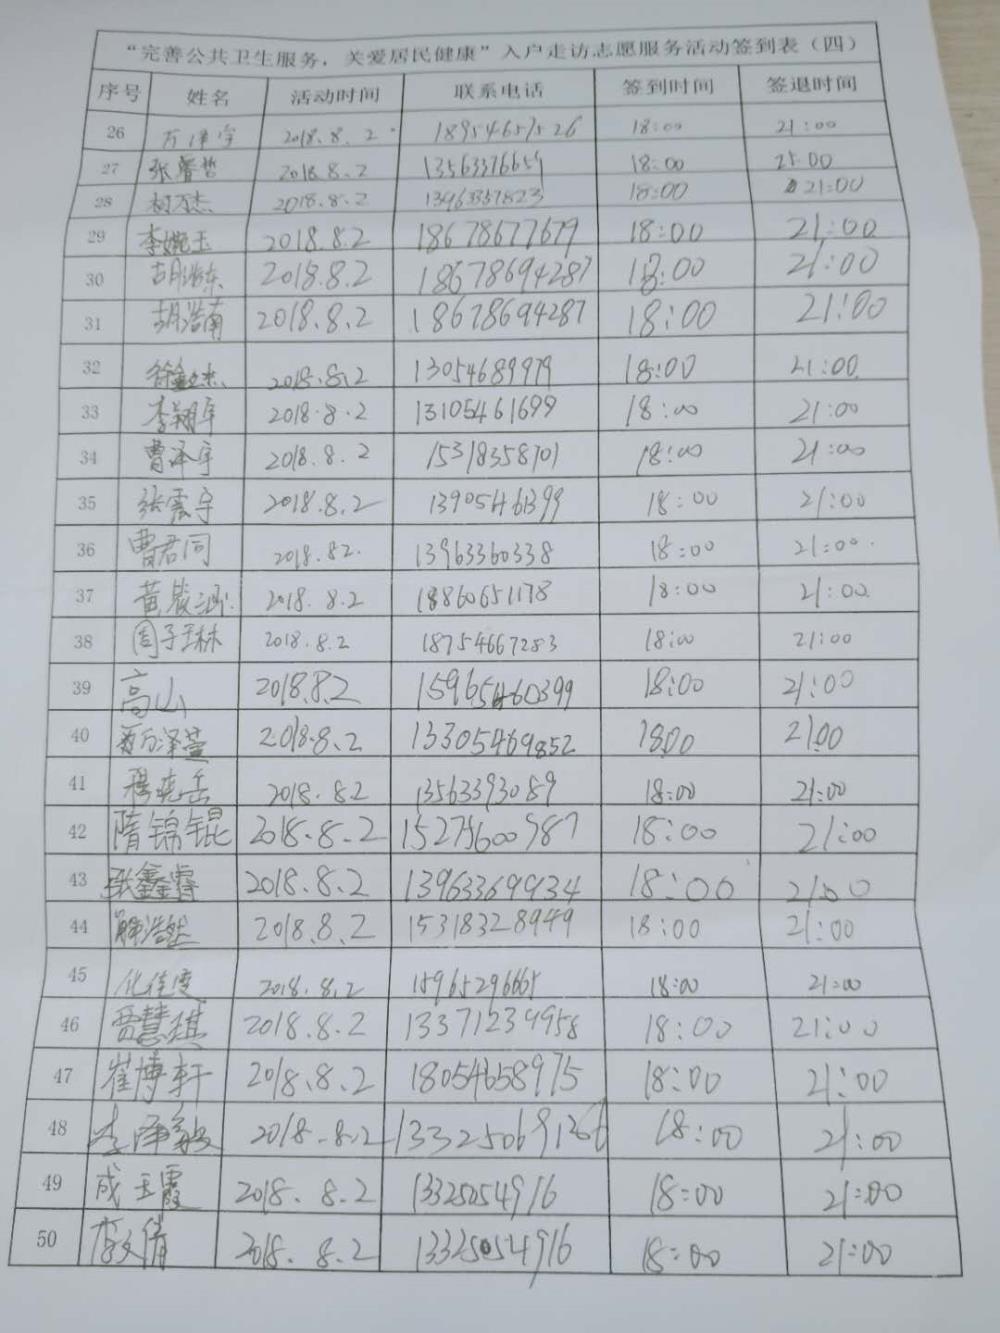 “完善公共卫生服务，关爱居民健康”入户走访志愿服务活动签到表（四）
序号 姓名 活动时间 联系电话 签到时间 签退时间
26 2018.8.2 18:00 21:00
27 2018.8.2 13563376659 18:00
28 2018.8.2 13963357823 18:00 21:00
29 李婉玉 2018.8.2 18678677679 18:00 21:00
30 胡浩东 2018.8.2 18678694287 18:00 21:00
31 胡浩南 2018.8.2 18678694287 18:00 21:00
32 2018.8.2 13054689979 18:00 21:00
33 2018.8.2 13105461699 18:00 21:00
34 曹泽宇 2018.8.2 15318358701 18:00 21:00
35 张震宇 2018.8.2 13905461399 18:00 21:00
36 曹君同 2018.82. 13963360338 18:00 21:00
37 2018.8.2 18860651178 18:00 21:00
38 周子琳 2018.8.2 18754667283 18:00 21:00
39 高山 2018.8.2 15965460399 18:00 21:00
40 2018.8.2 13305469852 18:00 21:00
41 2018.8.2 13563393089 18:00 21:00
42 隋锦锟 2018.8.2 15275600987 18:00 21:00
43 张鑫睿 2018.8.2 13963369934 18:00 21:00
44 解浩然 2018.8.2 15318328949 18:00 21:00
45 2018.8.2 15965296665 18:00 21:00
46 贾慧琪 2018.8.2 13371239958 18:00 21:00
47 崔博轩 2018.8.2 18054658975 18:00 21:00
48 李泽毅 2018.8.2 18:00 21:00
49 成玉霞 2018.8.2 13325054916 18:00 21:00
50 李文倩 2018.8.2 13325054916 18:00 21:00